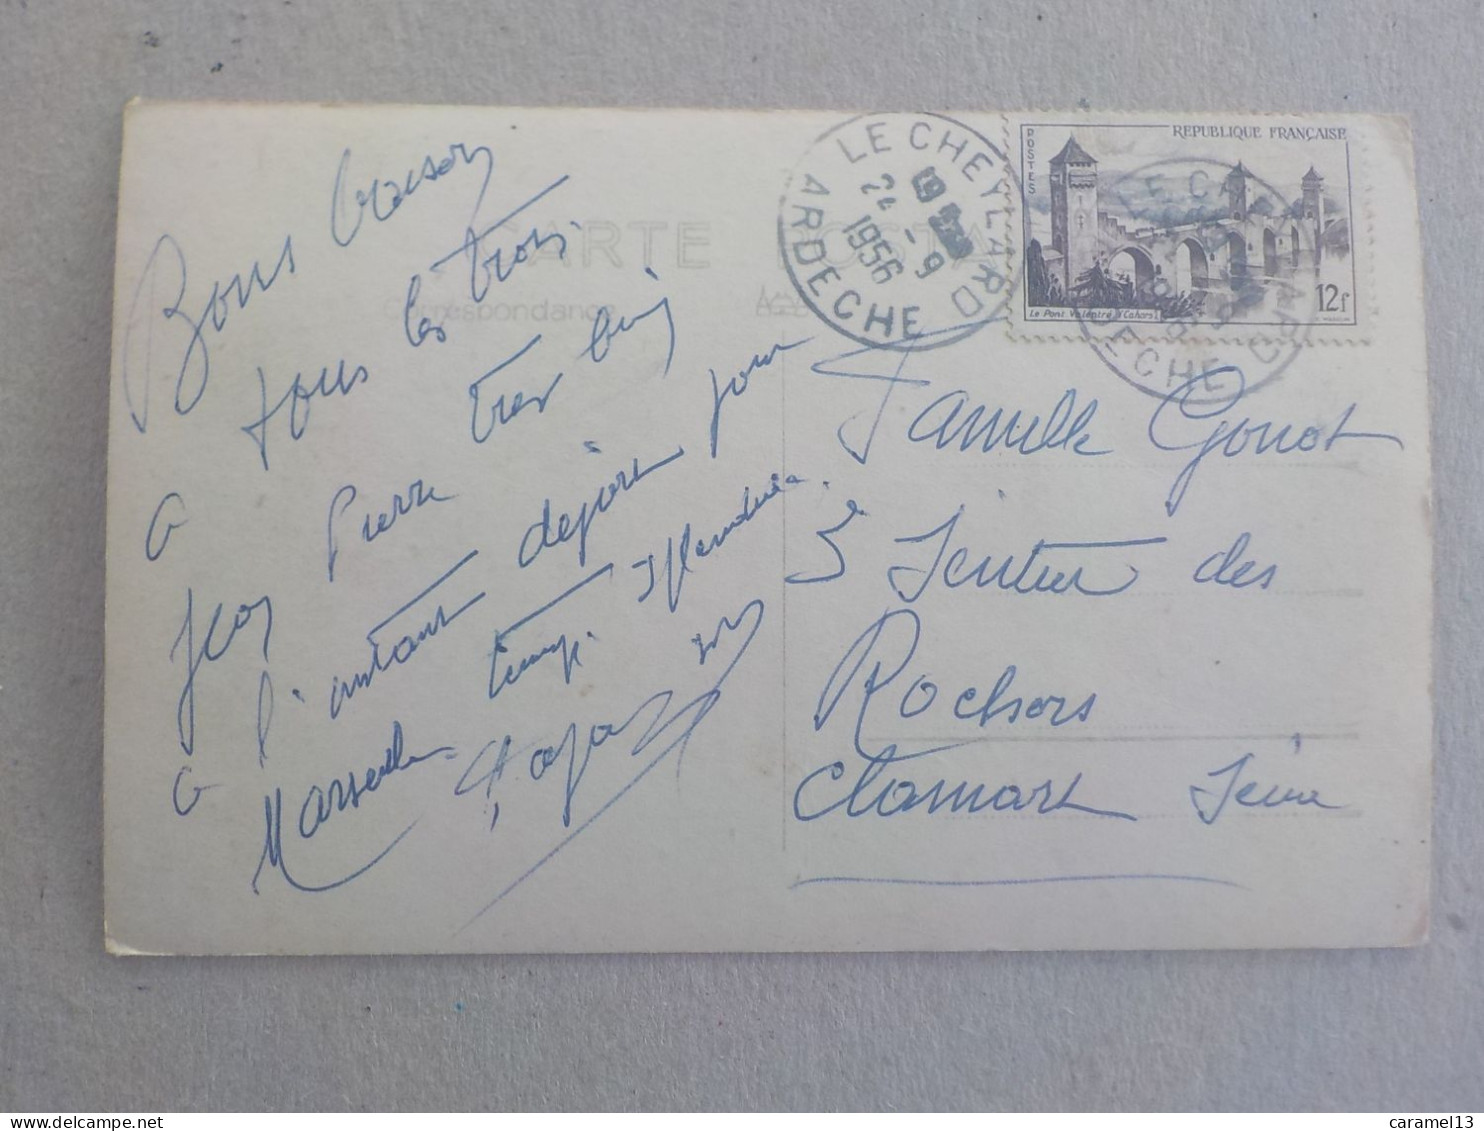 Bons baisers
à tous les trois.
Jean Pierre très bien
à l'instant départ pour
Marseille temps splendide
CARTE POSTA
Correspondance
LE CHEYLARD
24 - 9
1956
ARDECHE
REPUBLIQUE FRANÇAISE
POSTES
12f
Le Pont Valentré (Cahors)
LE CHEYLARD
ARDECHE
Famille Gonot
5 Sentier des
Rochers
Clamart Seine
caramel13